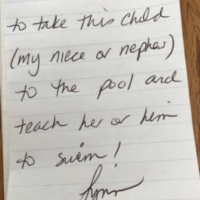 to take this child
(my niece or nephew)
to the pool and
teach her or him
to swim!
Lynn